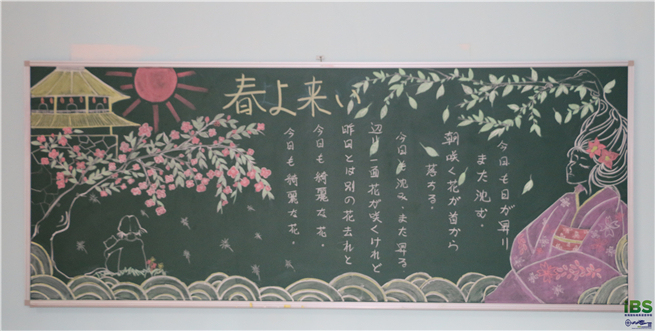 春よ来い
今日も日が昇り
また沈む.
朝咲く花が首から
落ちる.
今日も沈み,また昇る
辺り一面花が咲くけれど
昨日とは別の花去れと
今日も綺麗な花.
今日も綺麗な花.
IBS